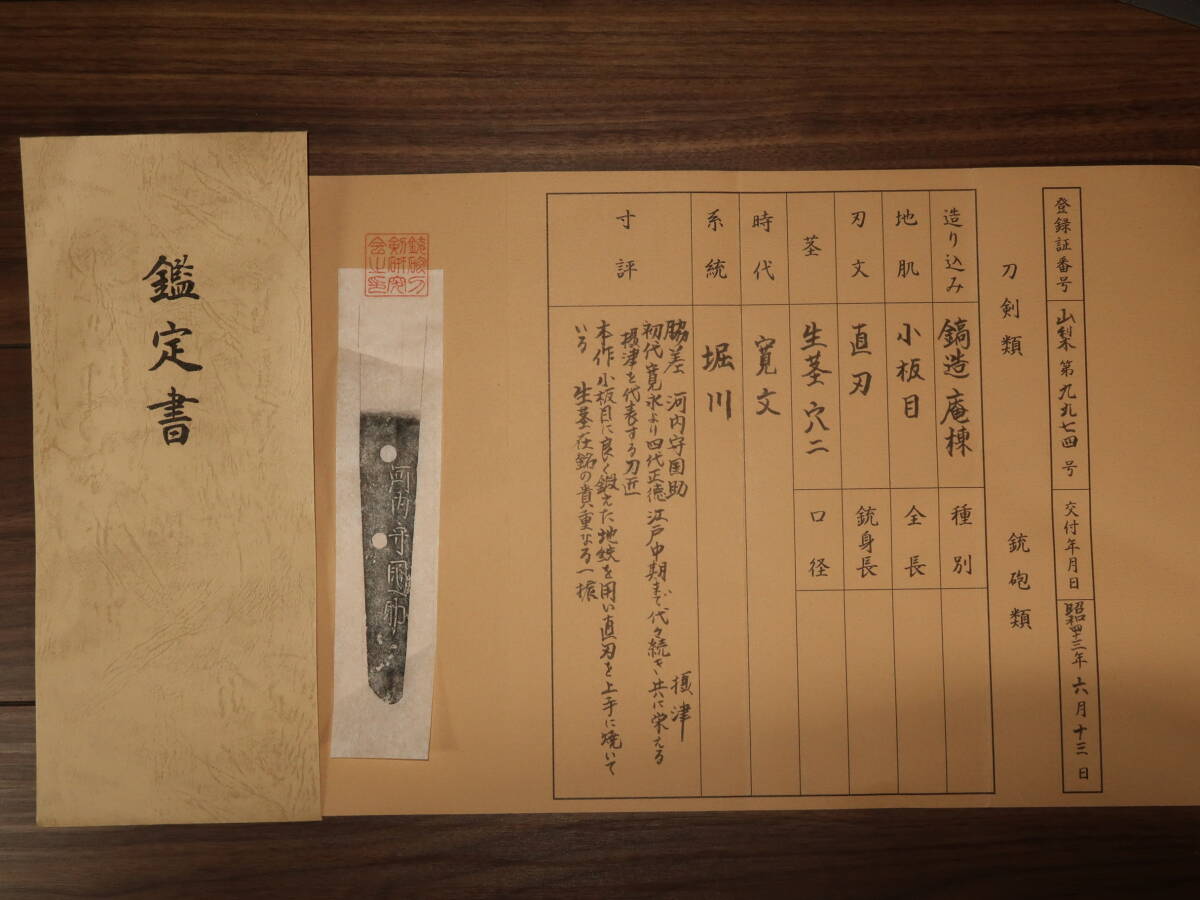 鑑定書
登録証番号 山梨 第九九七四号 交付年月日 昭四十三年六月十三日
刀剣類 銃砲類
造り込み 鎬造庵棟 種別
地肌 小板目 全長
刃文 直刃 銃身長
茎 生茎穴二 口径
時代 寛文
系統 堀川
寸評
脇差 河内守国助 摂津
初代寛永より四代正徳 江戸中期まで代々続き共に栄える
摂津を代表する刀匠
本作小板目に良く鍛えた地鉄を用い直刃を上手に焼いて
いる 生茎在銘の貴重なる一振
銃砲刀
剣研究
会之印
河内守国助